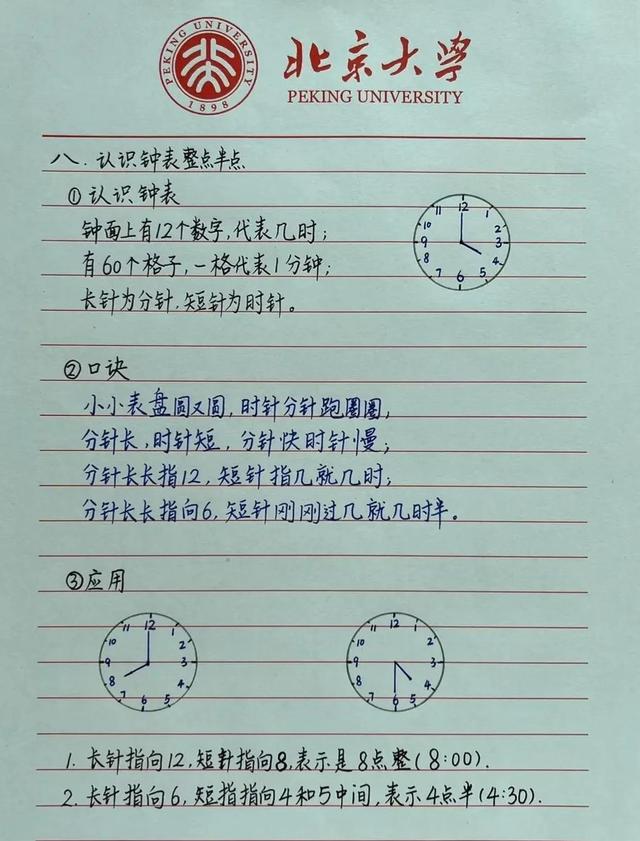 PEKING UNIVERSITY
1898
北京大学
PEKING UNIVERSITY
八.认识钟表整点半点
①认识钟表
钟面上有12个数字,代表几时;
有60个格子,一格代表1分钟;
长针为分针,短针为时针。
12
1
2
3
4
5
6
7
8
9
10
11
②口诀
小小表盘圆又圆,时针分针跑圈圈,
分针长,时针短,分针快时针慢;
分针长长指12,短针指几就几时;
分针长长指向6,短针刚刚过几就几时半。
③应用
12
1
2
3
4
5
6
7
8
9
10
11
12
1
2
3
4
5
6
7
8
9
10
11
1.长针指向12,短针指向8,表示是8点整(8:00).
2.长针指向6,短指指向4和5中间,表示4点半(4:30).